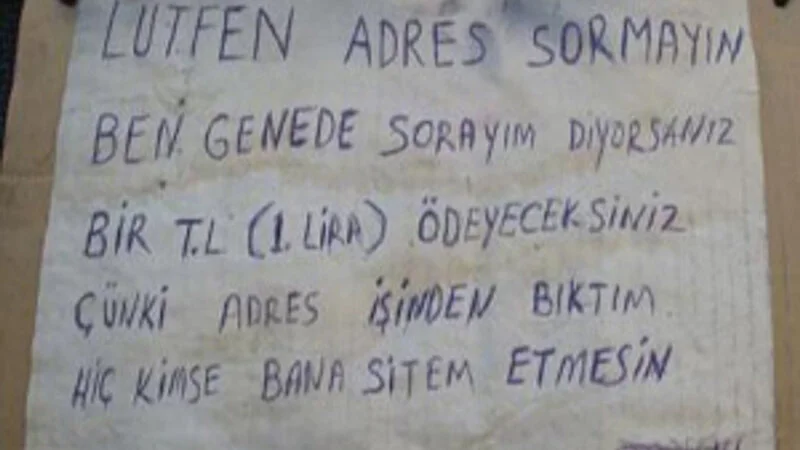 LUTFEN ADRES SORMAYIN
BEN GENEDE SORAYIM DİYORSANIZ
BİR T.L (1. LİRA) ÖDEYECEKSİNİZ
ÇÜNKİ ADRES İŞİNDEN BIKTIM
HİÇ KİMSE BANA SİTEM ETMESİN